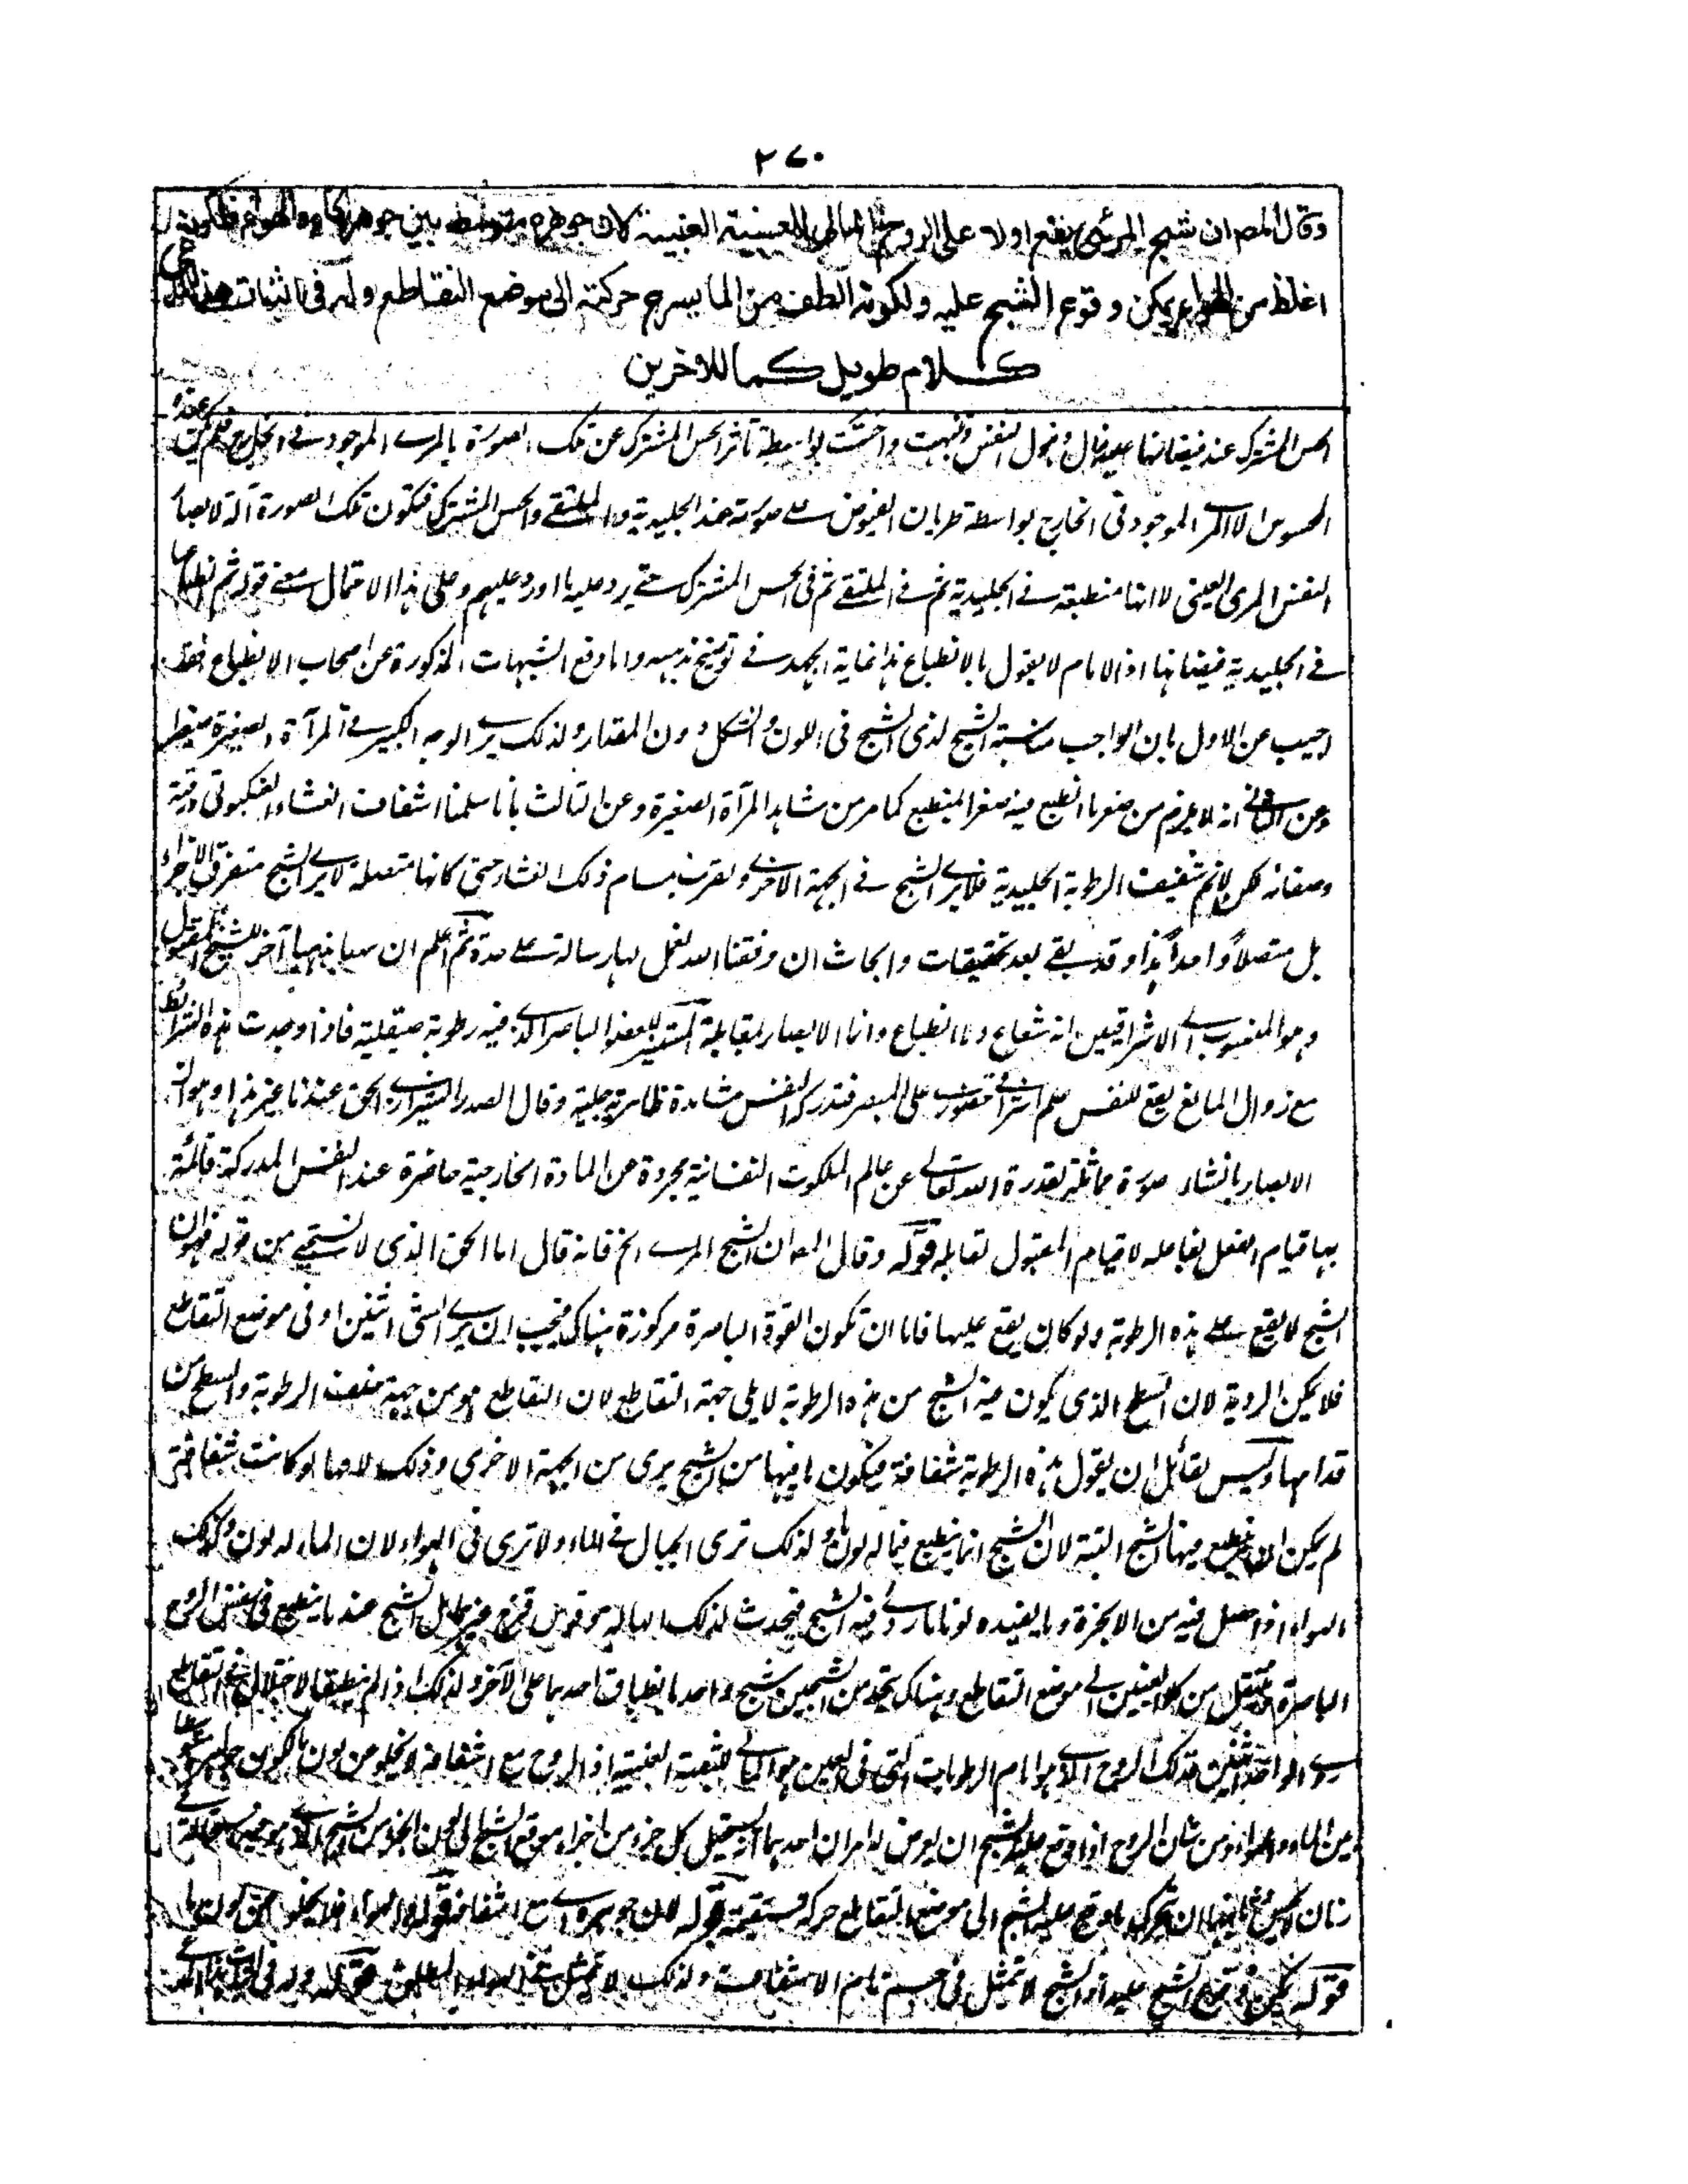 ٢٧٠
وقال المص ان شبح المرئى يقع اولا على الروح التالى للعينية العنبية لان جوهره متوسط بين جوهر الماء والهواء فلكونه
اغلظ من الهواء يمكن وقوع الشبح عليه ولكونه الطف من الماء يسرع حركته الى موضع التقاطع وله فى اثبات هذا
كلام طويل كما للاخرين
الحس المشترك عند فيضانها عليه قال وتنبهت واحست بواسطة تاثر الحس المشترك عن تلك الصورة بالمرے الموجود فے الخارج فلم يكن
المحسوس الا الموجود فى الخارج بواسطة طريان الفيوض علے صورته عند الجليدية والملتقے والحس المشترك فتكون تلك الصورة آلة لابصار
النفس المرى العينى لا انها منطبعة فے الجليدية ثم فے الملتقے ثم فى الحس المشترك حتے يرد عليه ما اورد عليهم وعلى هذا الاحتمال معنے قوله ثم انطباعها
فے الجليدية فيضانها اذ الامام لا يقول بالانطباع هذا غاية الجهد فے توضيح مذهبه واما دفع الشبهات المذكورة عن اصحاب الانطباع فقد
اجيب عن الاول بان الواجب مناسبة الشبح لذى الشبح فى اللون والشكل دون المقدار ولذلك يرے الوجه الكبير فے المرآة الصغيرة صغيرا
وعن الثانى انه لا يلزم من صغر ما انطبع فيه صغر المنطبع كما مر من شاهد المرآة الصغيرة وعن الثالث بانا سلمنا اشفاف الغشاء العنكبوتى ورقته
وصفائه لكن لا نم شفيف الرطوبة الجليدية فلا يرے الشبح فے الجهة الاخرے ولقرب مسام ذلك الغشاء حتى كانها متصلة لا يرے الشبح متفرق الاجزاء
بل متصلا واحدا هذا وقد بقے بعد تحقيقات وابحاث ان وفقنا الله لعمل لها رسالة علے حدة ثم اعلم ان ههنا مذهبا آخر للشيخ المقتول
وهو المنسوب الے الاشراقيين انه لا شعاع ولا انطباع وانما الابصار بمقابلة المستنير للعضو الباصر الذے فيه رطوبة صقيلية فاذا وجدت هذه الشرائط
مع زوال المانع يقع للنفس علم اشراقے حضورے على المبصر فتدركه النفس مشاهدة ظاهرة جلية وقال الصدر الشيرازے الحق عندنا غير هذا وهو ان
الابصار بانشاء صورة مماثلة بقدرة الله تعالے عن عالم الملكوت النفسانية مجردة عن المادة الخارجية حاضرة عند النفس المدركة قائمة
بها قيام الفعل بفاعله لا قيام المقبول بقابله قوله وقال المص ان الشبح المرے الخ فانه قال اما الحق الذى لا نستحے من قوله فهو ان
الشبح لا يقع علے هذه الرطوبة ولو كان يقع عليها فاما ان تكون القوة الباصرة مركوزة هناك فيجب ان يرے الشئ اثنين او فى موضع التقاطع
فلا يمكن الروية لان السطح الذى يكون فيه الشبح من هذه الرطوبة لا يلى جهة التقاطع لان التقاطع هو من جهة خلف الرطوبة والسطح من
قدامها وليس لقائل ان يقول هذه الرطوبة شفافة فيكون ما فيها من الشبح يرى من الجهة الاخرى وذلك لانها لو كانت شفافة
لم يكن ان ينطبع فيها الشبح البتة لان الشبح انما ينطبع فيما له لون ما ولذلك ترى الجبال فے الماء ولا ترى فى الهواء لان الماء له لون وكذلك
الهواء اذ احصل فيه من الابخرة وما يفيده لونا ما رئے فيه الشبح فيحدث لذلك الهالة وقوس قزح بل الشبح عندنا ينطبع فى نفس الروح
الباصرة فينتقل من كلا العينين الے موضع التقاطع وهناك يتحد من الشبحين شبح واحد بانطباق احدهما على الآخر ولذلك اذ الم ينطبقا لاختلال فے التقاطع
رے الواحد اثنين فذلك الروح الذے هو امام الرطوبات التى فى العين هو التالے للثقبة العنبية اذ الروح مع اشفافه لا يخلو من لون ما لكون
من الماء والهواء ومن شان الروح اذا وقع عليه الشبح ان يعرض له امران احدهما ان يستحيل كل جزء من اجزاء موقع الشبح الى لون الجزء من الشبح الذے هو فيه
وثانيهما ان يتحرك ما وقع عليه الشبح الى موضع التقاطع حركة مستقيمة قوله لان جوهره اے مع اشفافه قوله والهواء فلا يخلو عن لون ما
قوله يمكن وقوع الشبح عليه اذ الشبح لا يتمثل فى جسم تام الاشفاف ولذلك لا يتمثل فے الهواء قوله وله فى اثبات هذا